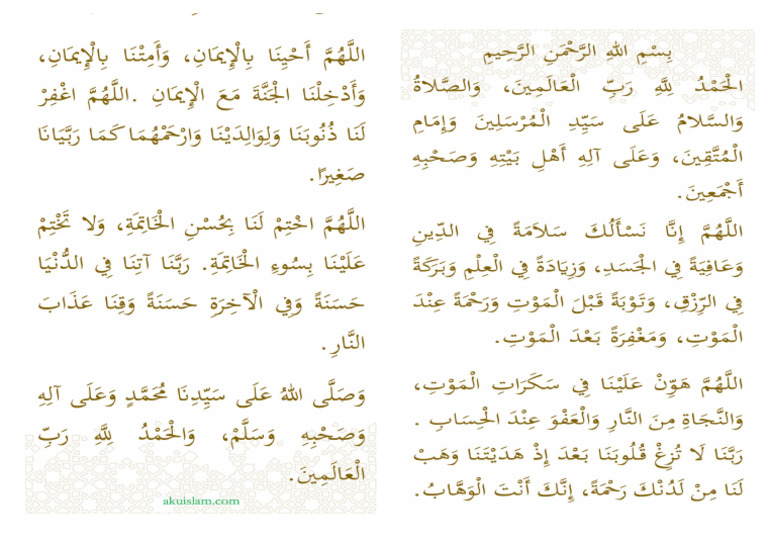 بِسْمِ اللهِ الرَّحْمَنِ الرَّحِيمِ
الْحَمْدُ لِلَّهِ رَبِّ الْعَالَمِينَ، وَالصَّلاةُ
وَالسَّلامُ عَلَى سَيِّدِ الْمُرْسَلِينَ وَإِمَامِ
الْمُتَّقِينَ، وَعَلَى آلِهِ أَهْلِ بَيْتِهِ وَصَحْبِهِ
أَجْمَعِينَ.
اللَّهُمَّ إِنَّا نَسْأَلُكَ سَلاَمَةً فِي الدِّينِ
وَعَافِيَةً فِي الْجَسَدِ، وَزِيَادَةً فِي الْعِلْمِ وَبَرَكَةً
فِي الرِّزْقِ، وَتَوْبَةً قَبْلَ الْمَوْتِ وَرَحْمَةً عِنْدَ
الْمَوْتِ، وَمَغْفِرَةً بَعْدَ الْمَوْتِ.
اللَّهُمَّ هَوِّنْ عَلَيْنَا فِي سَكَرَاتِ الْمَوْتِ،
وَالنَّجَاةِ مِنَ النَّارِ وَالْعَفْوَ عِنْدَ الْحِسَابِ .
رَبَّنَا لَا تُزِغْ قُلُوبَنَا بَعْدَ إِذْ هَدَيْتَنَا وَهَبْ
لَنَا مِنْ لَدُنْكَ رَحْمَةً، إِنَّكَ أَنْتَ الْوَهَّابُ.
اللَّهُمَّ أَحْيِنَا بِالْإِيمَانِ، وَأَمِتْنَا بِالْإِيمَانِ،
وَأَدْخِلْنَا الْجَنَّةَ مَعَ الْإِيمَانِ .اللَّهُمَّ اغْفِرْ
لَنَا ذُنُوبَنَا وَلِوَالِدَيْنَا وَارْحَمْهُمَا كَمَا رَبَّيَانَا
صَغِيرًا.
اللَّهُمَّ اخْتِمْ لَنَا بِحُسْنِ الْخَاتِمَةِ، وَلا تَخْتِمْ
عَلَيْنَا بِسُوءِ الْخَاتِمَةِ. رَبَّنَا آتِنَا فِي الدُّنْيَا
حَسَنَةً وَفِي الْآخِرَةِ حَسَنَةً وَقِنَا عَذَابَ
النَّارِ.
وَصَلَّى اللهُ عَلَى سَيِّدِنَا مُحَمَّدٍ وَعَلَى آلِهِ
وَصَحْبِهِ وَسَلَّمْ، وَالْحَمْدُ لِلَّهِ رَبِّ
الْعَالَمِينَ.
akuislam.com